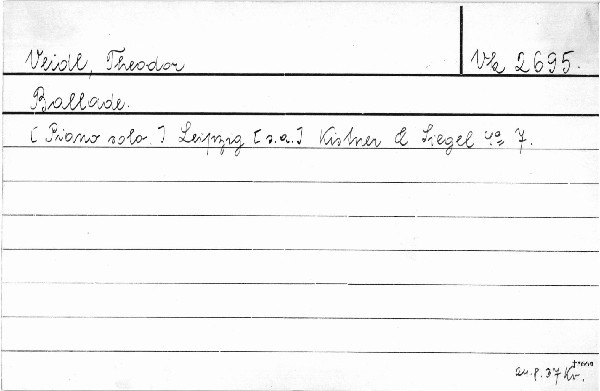 Veidl, Theodor
Vk 2695.
Ballade.
[Piano solo.] Leipzig [s.a.] Kistner & Siegel 4° 7.
37 Kv.